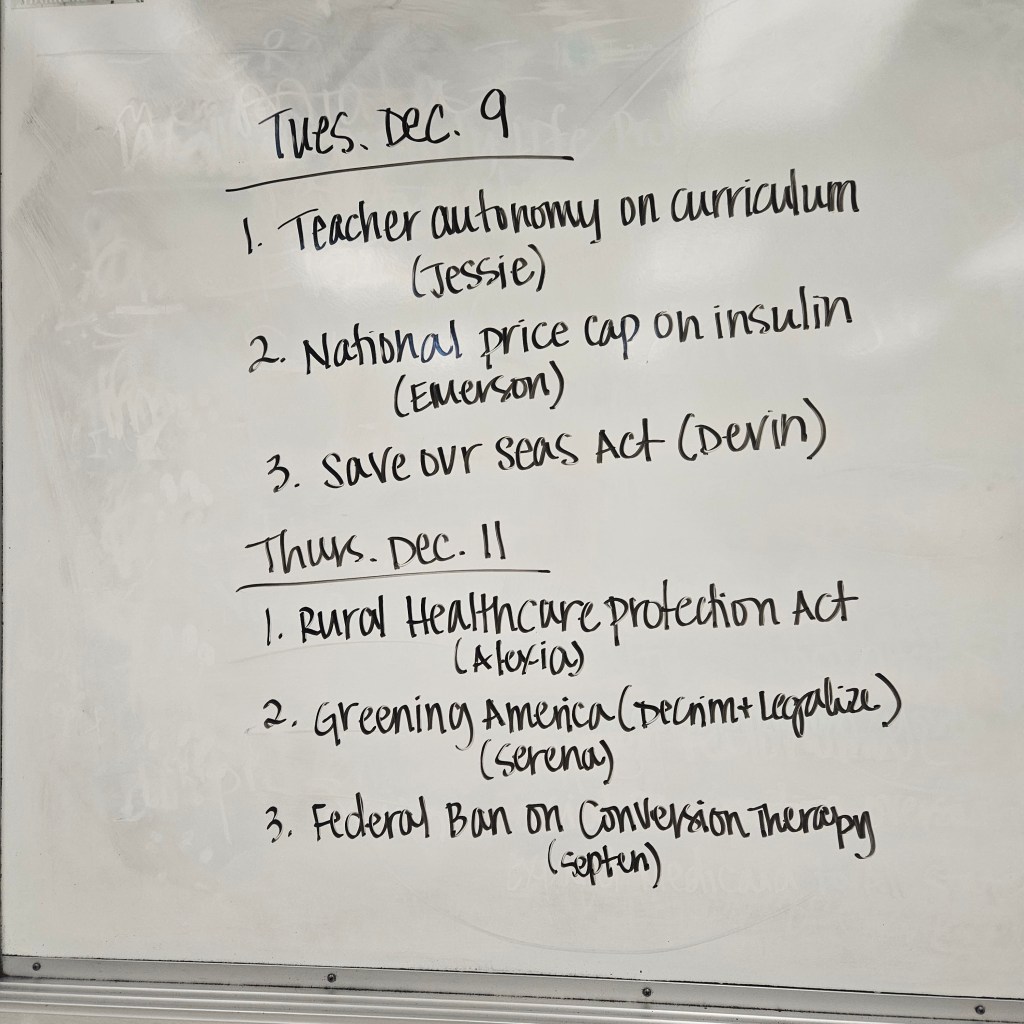 Tues. Dec. 9
1. Teacher autonomy on curriculum
(Jessie)
2. National price cap on insulin
(Emerson)
3. Save our seas Act (Devin)
Thurs. Dec. 11
1. Rural Healthcare protection Act
(Alexia)
2. Greening America (Decrim + Legalize)
(Serena)
3. Federal Ban on Conversion Therapy
(Septen)